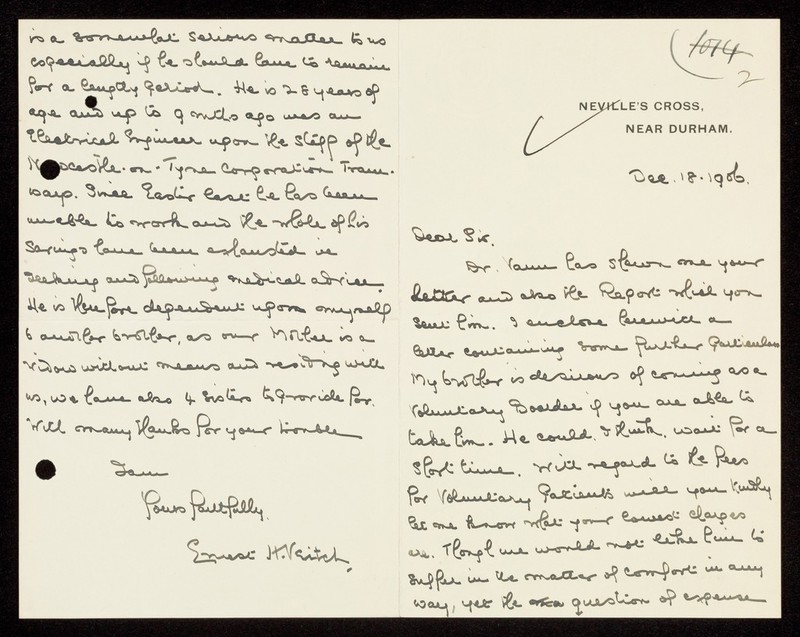 1014
2
NEVILLE'S CROSS,
NEAR DURHAM.
Dec. 18. 1906.
Dear Sir,
Dr. Vann has shewn me your
letter and also the Report which you
sent him. I enclose herewith a
letter containing some further particulars
My brother is desirous of coming as a
Voluntary Boarder if you are able to
take him. He could, I think, wait for a
short time. With regard to the fees
for Voluntary Patients will you kindly
let me know what your lowest charges
are. Though we would not like him to
suffer in the matter of comfort in any
way, yet the question of expense
is a somewhat serious matter to us
especially if he should have to remain
for a lengthy period. He is 28 years of
age and up to 9 mths ago was an
Electrical Engineer upon the Staff of the
Newcastle-on-Tyne Corporation Tram-
ways. Since Easter last he has been
unable to work and the whole of his
savings have been exhausted in
seeking and following medical advice.
He is therefore dependent upon myself
& another brother, as our Mother is a
widow without means and residing with
us, we have also 4 sisters to provide for.
With many thanks for your trouble
I am
Yours faithfully,
Ernest H. Veitch.